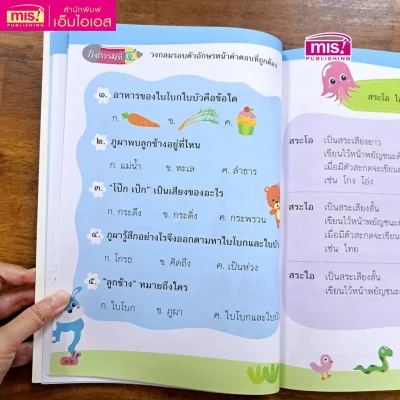 mis!
PUBLISHING
สำนักพิมพ์
เอ็มไอเอส
mis!
PUBLISHING
กิจกรรมที่ ๑
วงกลมรอบตัวอักษรหน้าคำตอบที่ถูกต้อง
๑. อาหารของใบโบกใบบัวคือข้อใด
ก. ข. ค.
๒. ภูผาพบลูกช้างอยู่ที่ไหน
ก. แม่น้ำ ข. ทะเล ค. ลำธาร
๓. "โป๊ก เป๊ก" เป็นเสียงของอะไร
ก. กระดึง ข. กระดิ่ง ค. กระพรวน
๔. ภูผารู้สึกอย่างไรจึงออกตามหาใบโบกและใบบัว
ก. โกรธ ข. คิดถึง ค. เป็นห่วง
๕. "ลูกช้าง" หมายถึงใคร
ก. ใบโบก ข. ภูผา ค. ใบโบกและใบบัว
สระโอ ไ
สระโอ เป็นสระเสียงยาว
เขียนไว้หน้าพยัญชนะต้
เมื่อมีตัวสะกดจะเขียนต
เช่น โกง โอ่ง
สระไอ เป็นสระเสียงสั้น
เขียนไว้หน้าพยัญชนะต้
เมื่อมีตัวสะกดจะเขียน
เช่น ไทย
สระใอ เป็นสระเสียงสั้น
เขียนไว้หน้าพยัญชนะ